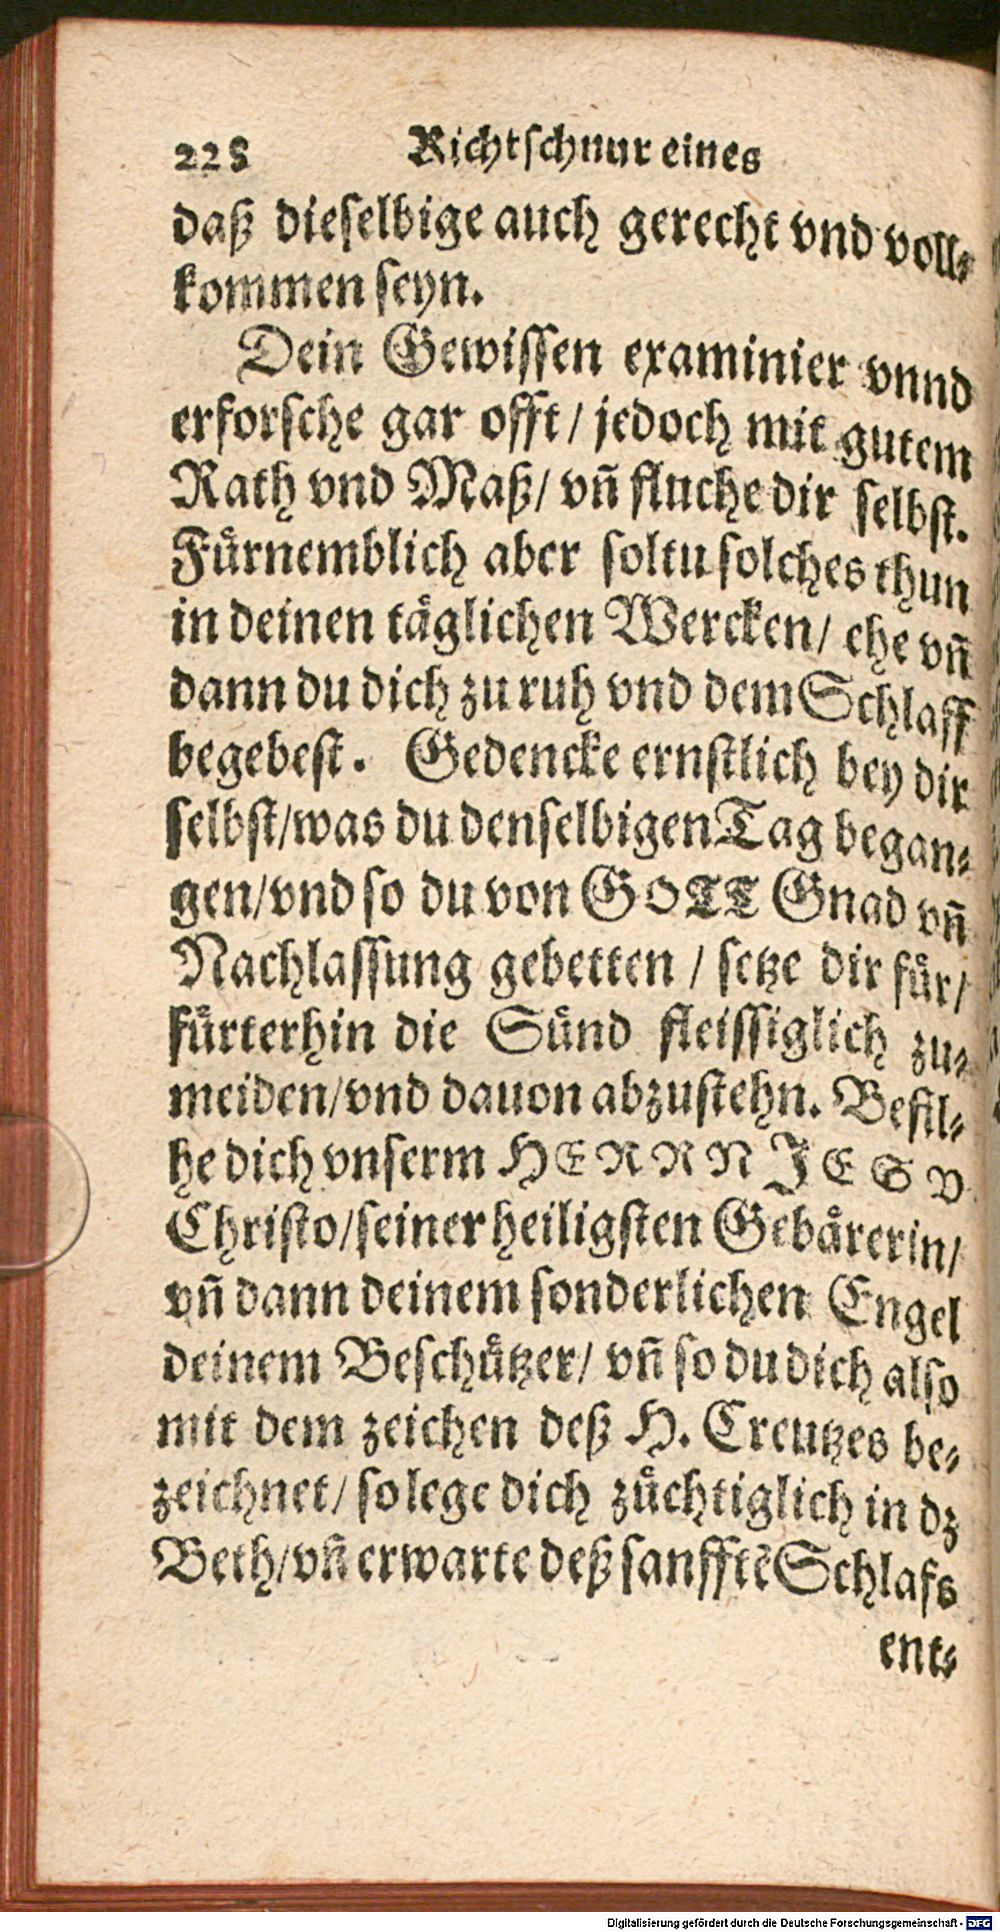 228 Richtschnur eines
daß dieselbige auch gerecht vnd voll-
kommen seyn.
Dein Gewissen examinier vnnd
erforsche gar offt/ jedoch mit gutem
Rath vnd Maß/ vñ fluche dir selbst.
Fuͤrnemblich aber soltu solches thun
in deinen taͤglichen Wercken/ ehe vñ
dann du dich zu ruh vnd dem Schlaff
begebest. Gedencke ernstlich bey dir
selbst/was du denselbigen Tag began-
gen/vnd so du von GOTT Gnad vñ
Nachlassung gebetten / setze dir fuͤr/
fuͤrterhin die Suͤnd fleissiglich zu-
meiden/vnd dauon abzustehn. Befil-
he dich vnserm HERRN JESV
Christo/seiner heiligsten Gebaͤrerin/
vñ dann deinem sonderlichen Engel
deinem Beschuͤtzer/ vñ so du dich also
mit dem zeichen deß H. Creutzes be-
zeichnet/ so lege dich zuͤchtiglich in dz
Beth/vñ erwarte deß sanfftẽ Schlafs
ent-
Digitalisierung gefördert durch die Deutsche Forschungsgemeinschaft - DFG